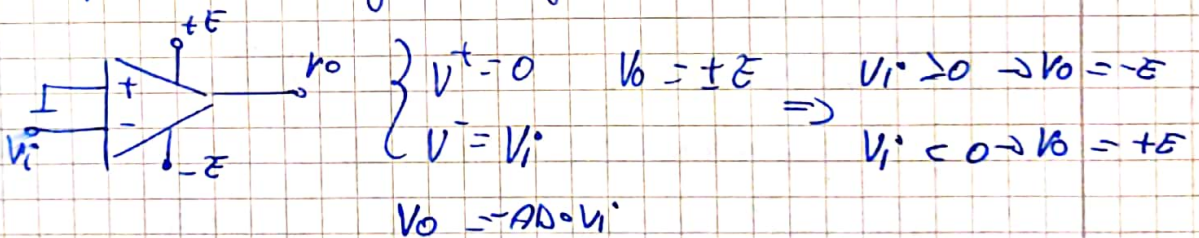 +E
+
-
Vi
-E
Vo
{ V⁺ = 0
V⁻ = Vi
Vo = ± E
=>
Vi > 0 → Vo = -E
Vi < 0 → Vo = +E
Vo = -AD•Vi